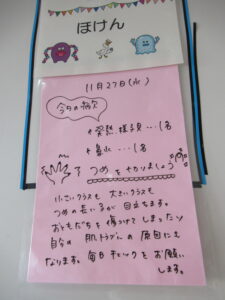 ほけん
11月27日(水)
今日の病欠
*発熱 様子見…1名
*鼻水…1名
つめをきりましょう
小さいクラスも 大きいクラスも
つめの長い子が 目立ちます。
おともだちを 傷つけてしまったり
自分の 肌トラブルの 原因にも
なります。毎日チェックを お願い
します。